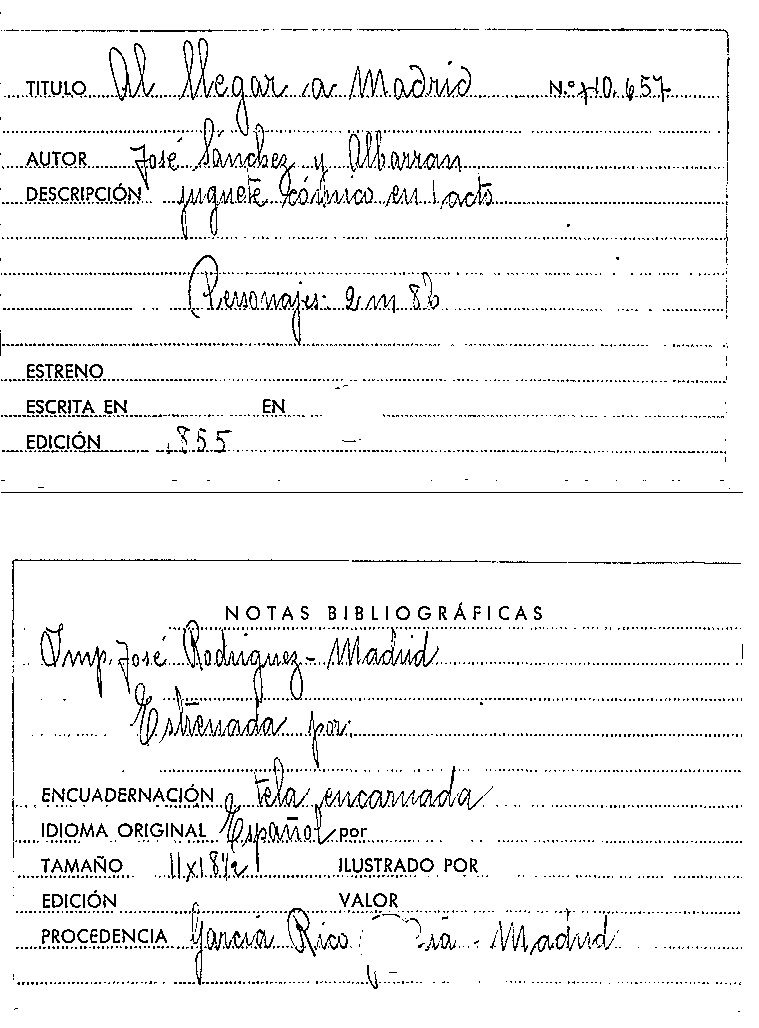 TITULO Al llegar a Madrid N.º 710.657
AUTOR José Sánchez y Albarran
DESCRIPCIÓN juguete cómico en 1 acto
Personajes: 2 m 8 h
ESTRENO
ESCRITA EN EN
EDICIÓN 1855
NOTAS BIBLIOGRÁFICAS
Imp. José Rodriguez - Madrid
Estrenada por:
ENCUADERNACIÓN tela encarnada
IDIOMA ORIGINAL Español por
TAMAÑO 11x18½ ILUSTRADO POR
EDICIÓN VALOR
PROCEDENCIA Garcia Rico - Madrid